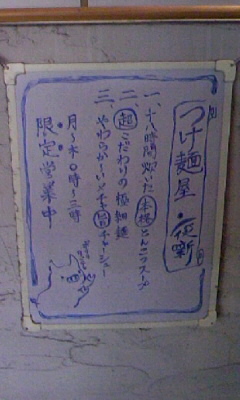 つけ麺屋・
一、十八時間炊いた本格とんこつスープ
二、超こだわりの極細麺
三、やわらか〜いメチャ旨チャーシュー
月〜木0時〜二時
限定営業中